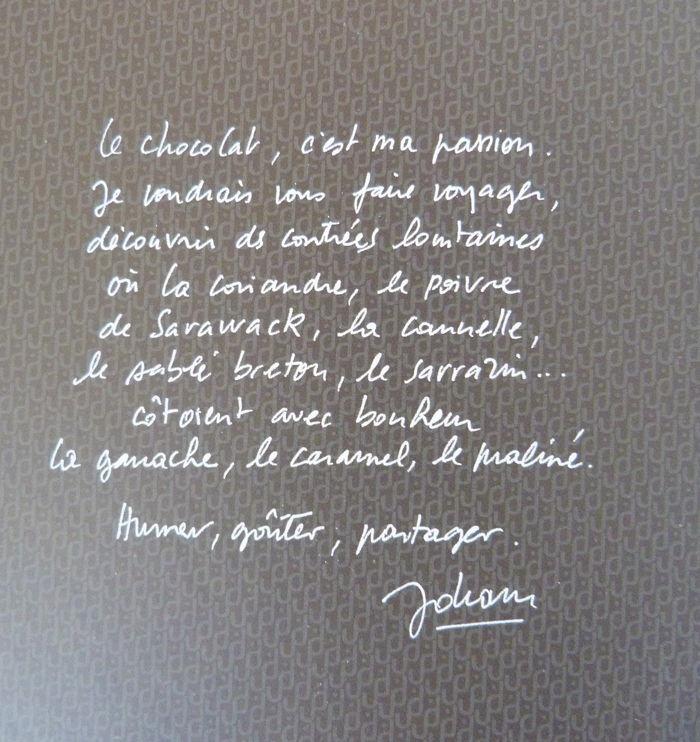 Le chocolat, c'est ma passion.
Je voudrais vous faire voyager,
découvrir des contrées lointaines
où la coriandre, le poivre
de Sarawack, la cannelle,
le sablé breton, le sarrazin...
côtoient avec bonheur
la ganache, le caramel, le praliné.
Humer, goûter, partager.
Johann